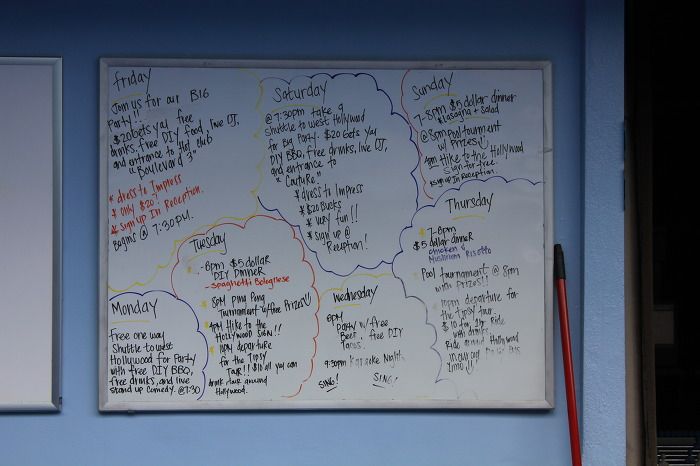 friday
Join us for our BIG
Party!!
$20 gets ya! free
drinks, free DIY food, live DJ,
and entrance to Hot club
"Boulevard 3"
* dress to Impress
* only $20!
* Sign up In Reception.
Begins @ 7:30PM.
Saturday
@ 7:30pm take a
Shuttle to west Hollywood
for Big Party. $20 gets ya!
DIY BBQ, free drinks, live DJ,
and entrance to
"Couture"
* dress to Impress
* $20 Bucks
* Very fun!!
* sign up @
Reception!
Sunday
7-8pm $5 dollar dinner
*lasagna + salad
@ 8pm pool tourment
w/ Prizes!!
4pm Hike to the Hollywood
Sign for free.
*sign up In Reception.
Monday
free one way
Shuttle to west
Hollywood for Party
with free DIY BBQ,
free drinks, and live
stand up comedy. @7:30
Tuesday
-8pm $5 dollar
DIY Dinner
-spaghetti Bolegnese
* 8pm Ping Pong
Tournament w/free Prizes!!
* 4pm Hike to the
Hollywood Sign!!
* 10pm departure
for the Tipsy
Tour!! $10 all you can
drink tour around
Hollywood.
Wednesday
8pm
Party w/ free
Beer, free DIY
Tacos.
9:30pm Karaoke Night
SING! SING!
Thursday
* 7-8pm
$5 dollar dinner
chicken &
Mushroom Risotto
* Pool tournament @ 8pm
with Prizes!!
* 10pm departure for
the Tipsy tour.
$10 for Ride
with drinks
Ride around Hollywood
in our own
Limo!!